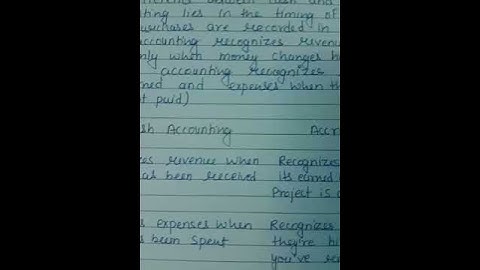 between cash and
ting lies in the timing of
purchases are recorded in
accounting recognizes revenu
nly when money changes h
accounting recognizes
ned and expenses when th
t paid)
sh Accounting Accr
zes revenue when Recognizes
as been received its earned
Project is
s expenses when Recognizes
s been spent they're bi
you've re